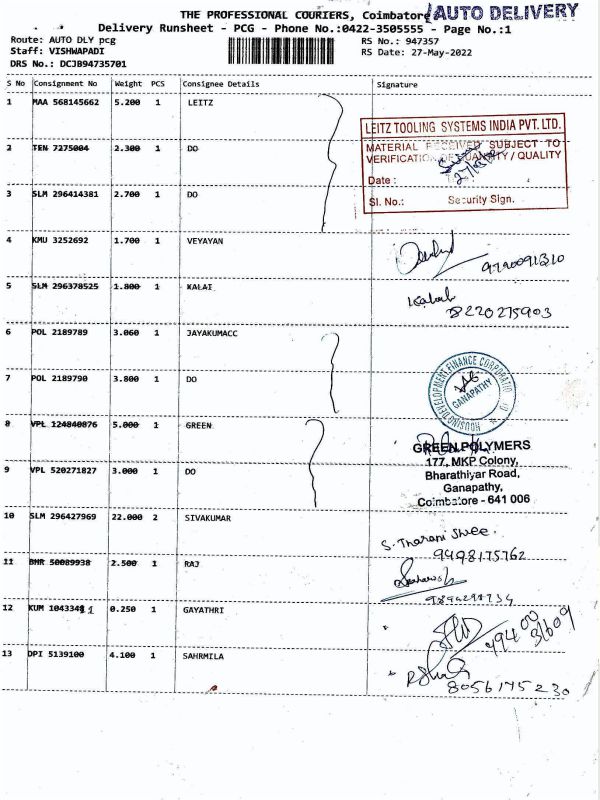 THE PROFESSIONAL COURIERS, Coimbatore AUTO DELIVERY
Delivery Runsheet - PCG - Phone No.:0422-3505555 - Page No.:1
Route: AUTO DLY pcg RS No.: 947357
Staff: VISHWAPADI RS Date: 27-May-2022
DRS No.: DCJB94735701
S No Consignment No Weight PCS Consignee Details Signature
1 MAA 568145662 5.200 1 LEITZ
LEITZ TOOLING SYSTEMS INDIA PVT. LTD.
MATERIAL RECEIVED SUBJECT TO
VERIFICATION OF QUANTITY / QUALITY
Date :
Sl. No.: Security Sign.
2 TEN 7275004 2.300 1 DO
3 SLM 296414381 2.700 1 DO
4 KMU 3252692 1.700 1 VEYAYAN
9790091310
5 SLM 296378525 1.800 1 KALAI
8220275903
6 POL 2189789 3.060 1 JAYAKUMACC
HOUSING DEVELOPMENT FINANCE CORPORATION
GANAPATHY
7 POL 2189790 3.800 1 DO
8 VPL 124840876 5.000 1 GREEN
GREEN POLYMERS
177, MKP Colony,
Bharathiyar Road,
Ganapathy,
Coimbatore - 641 006
9 VPL 520271827 3.000 1 DO
10 SLM 296427969 22.000 2 SIVAKUMAR
S. Tharani Shree.
9498175762
11 BMR 50089938 2.500 1 RAJ
12 KUM 1043341 0.250 1 GAYATHRI
13 DPI 5139100 4.100 1 SAHRMILA
8056175230